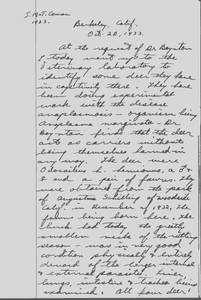 I. McT. Cowan
1933.
Berkeley, Calif.
Oct. 20, 1933.
At the request of Dr Boynton
I today went up to the
Veterinary laboratory to
identify some deer they have
in captivity there. They have
been doing experimental
work with the disease
anaplasmosis - organism being
Anaplasma marginale. Dr
Boynton finds that the deer
act as carriers without
being themselves harmed in
any way. The deer were
Odocoileus h. , a ♂ &
♀ and a pair of fawns. They
were obtained from the park
of Augustus Schilling of Woodside
Calif in of 1932, the
fawns being born here. The
buck had today, the
smallest neck of the rutting
season - was in very good
condition physically & entirely
devoid of the larger internal
& external parasites. Liver,
lungs, intestine & trachea being
examined. All four deer